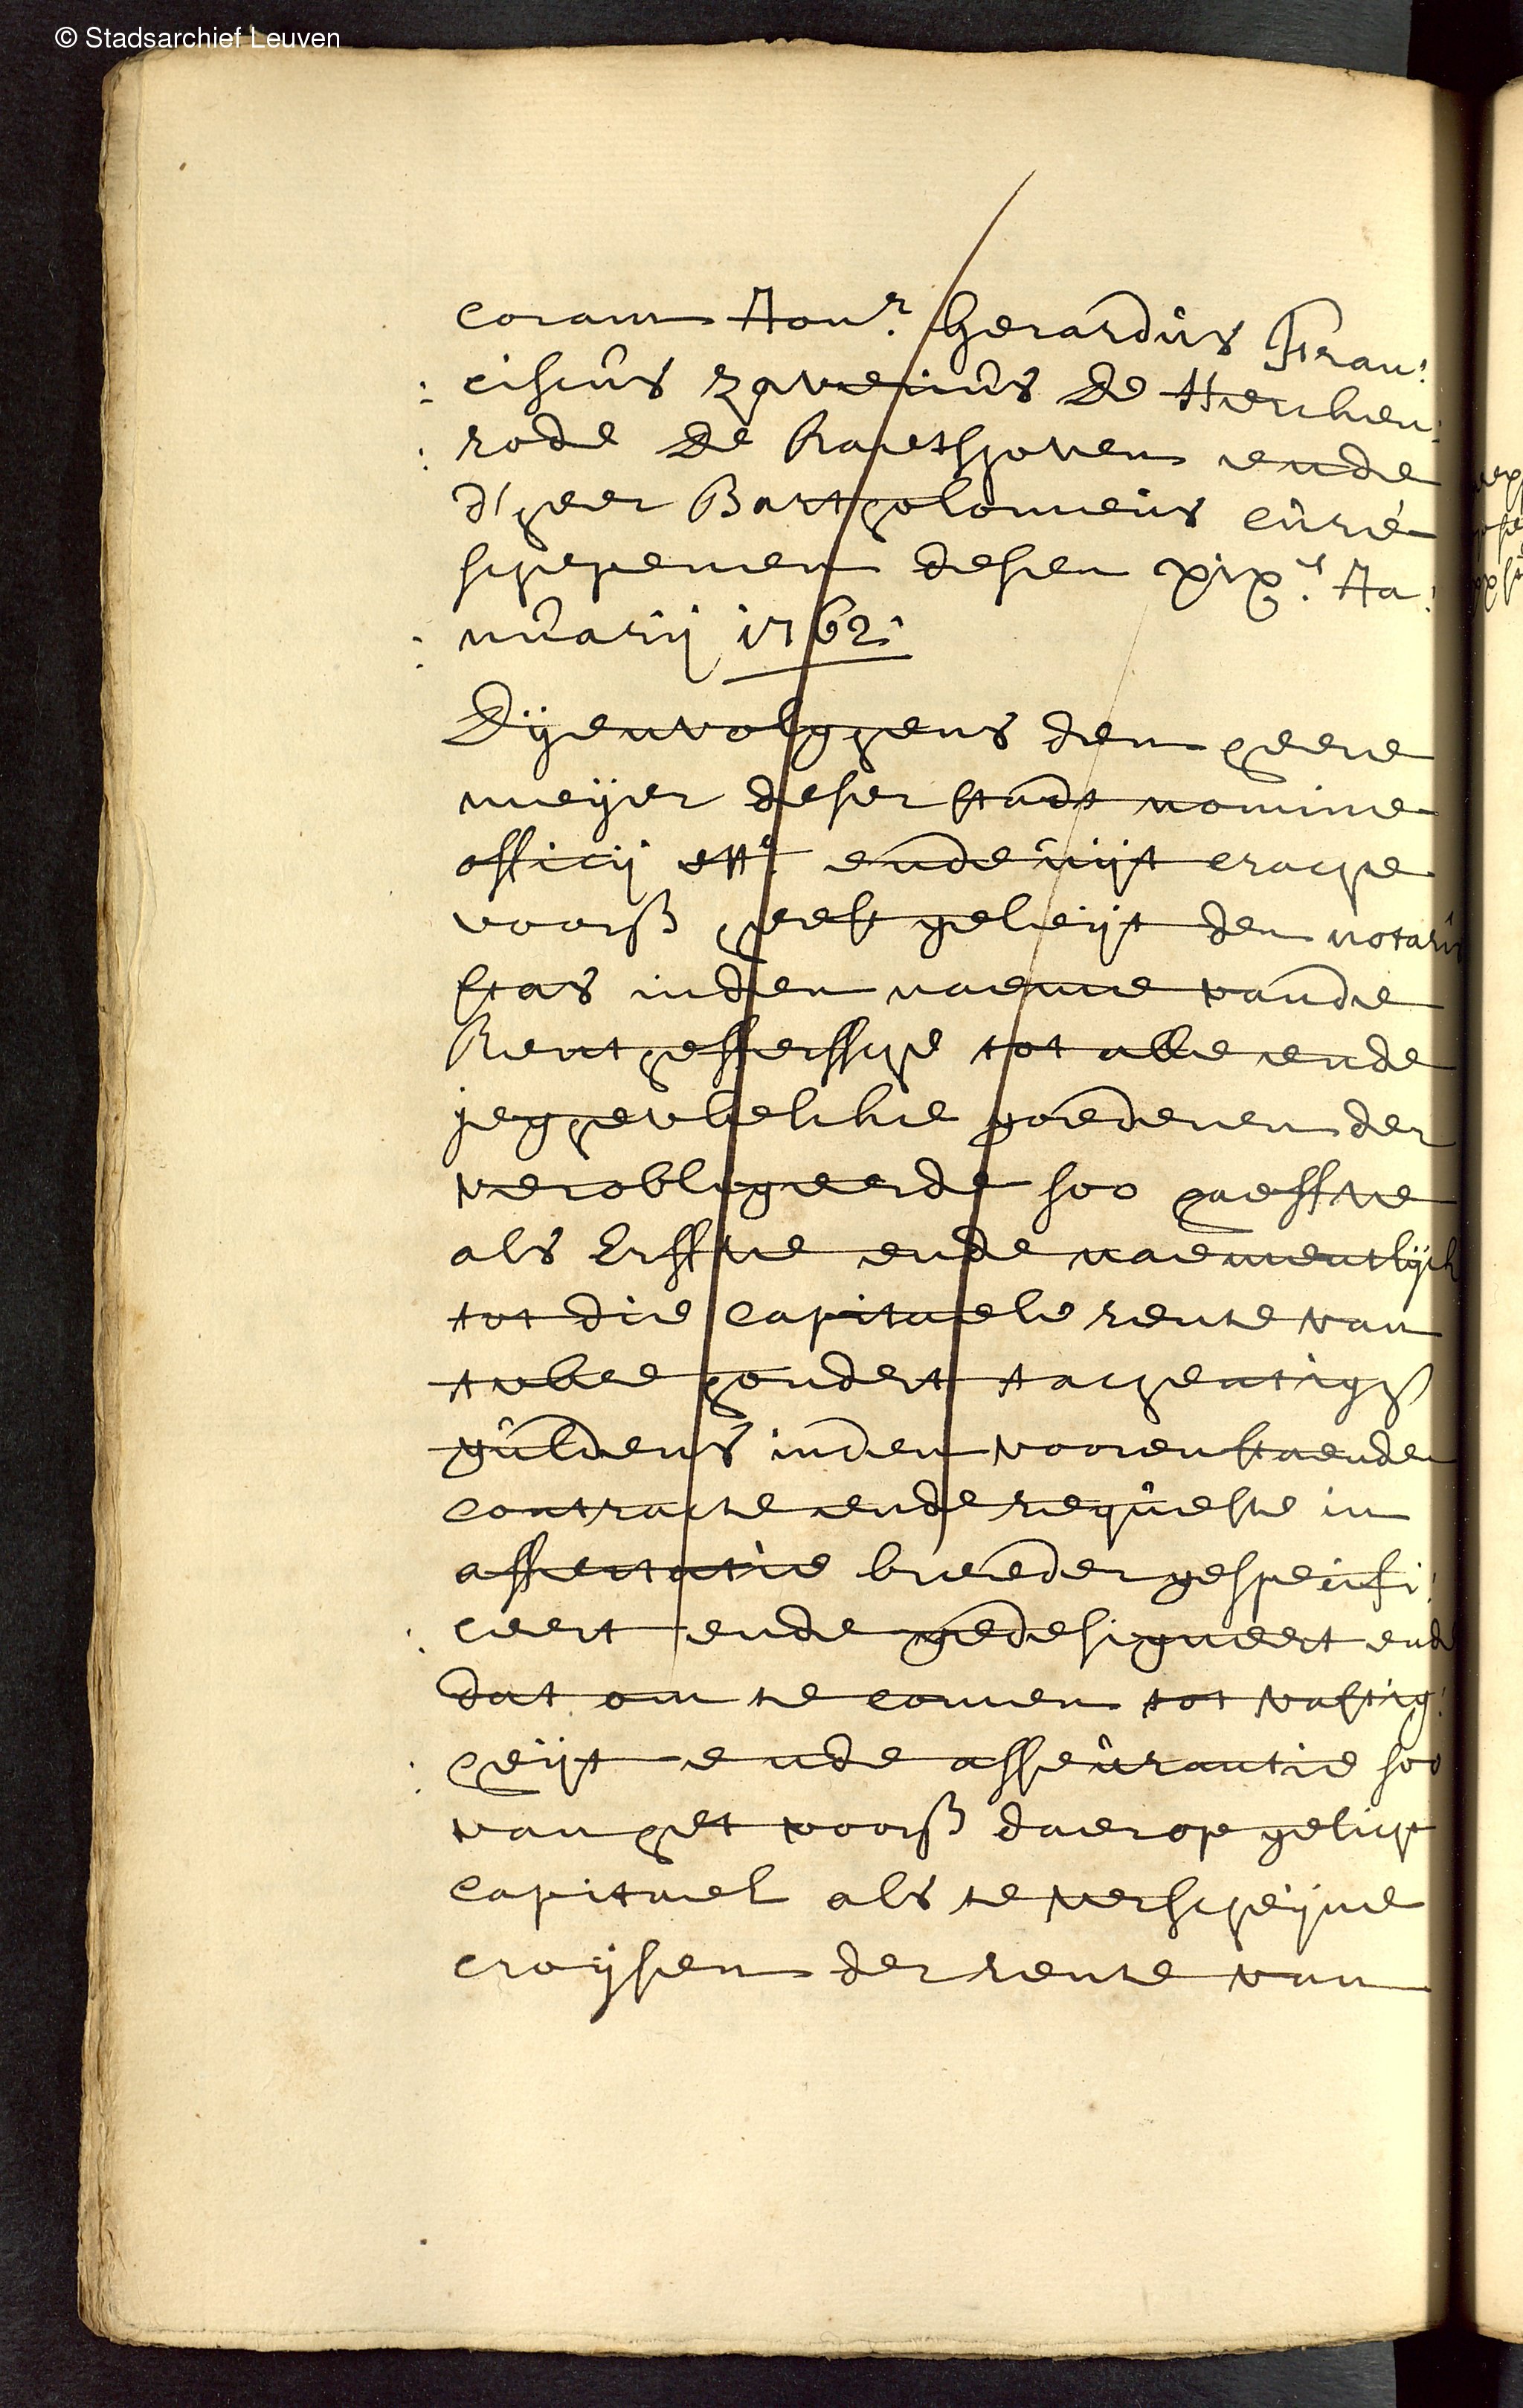 © Stadsarchief Leuven
coram Jonr. Gerardus Fran:
: ciscus Xaverius De Hercken:
: rode De Raetshoven ende
d'heer Bartholomeus Curé
schepenen desen xixs. Ja:
: nuarij 1762:
Dijenvolghens den heere
meijer deser stadt nomine
officij etta. ende uijt crachte
voors heeft geleijt den notaris
stas inden naeme vande
Rentheffersse tot alle ende
jeghewelcke goederen der
veroblijgeerde soo haeffve
als Erffve ende naementlijck
tot die capitaele rente van
twee hondert tachentigh
guldens inden voorenstaenden
contracte ende requeste in
affectatie breeder gespecifi:
: ceert ende gedesigneert ende
dat om te comen tot vastig:
: heijt ende asseurantie soo
van het voors daerop gelicht
capitael als te verscheijne
croijsen der rente van